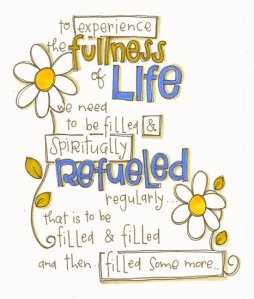 to experience
the fullness
of LIFE
we need
to be filled &
SPIRITUALLY
REFUELED
regularly...
that is to be
filled & filled
and then. filled some more..